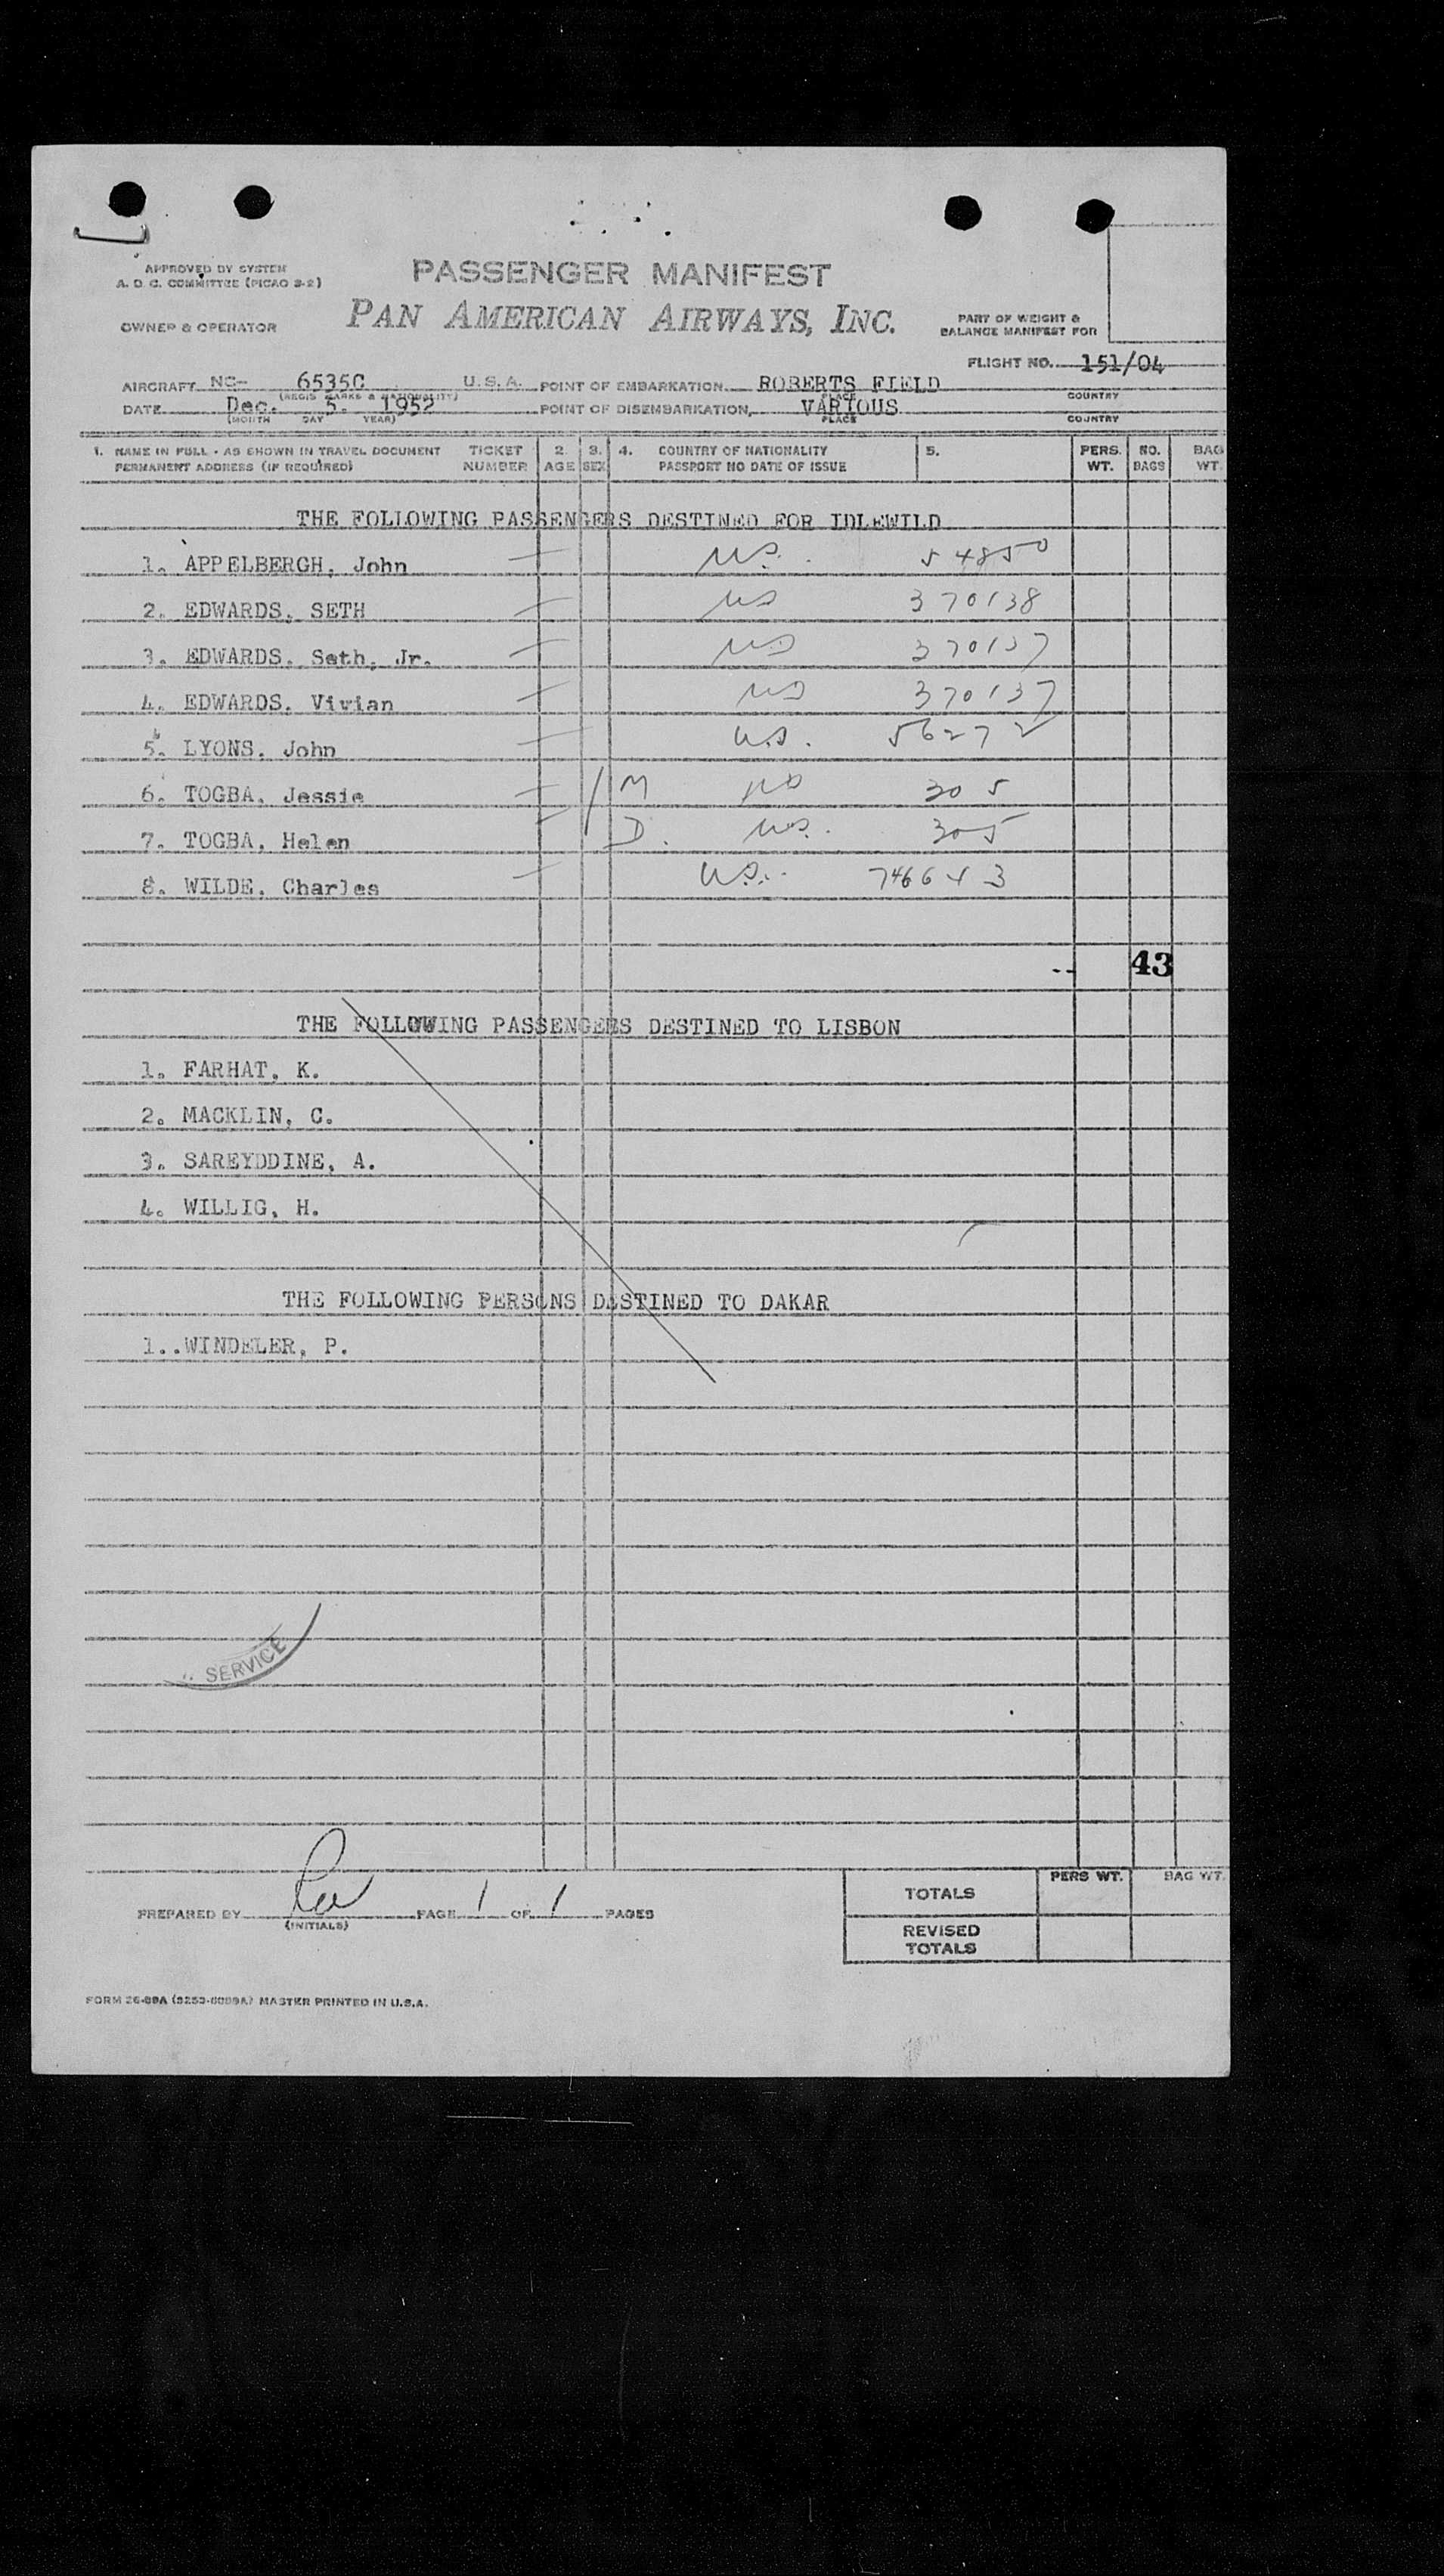 APPROVED BY SYSTEM
A. D. C. COMMITTEE (PICAO 3-2)
PASSENGER MANIFEST
OWNER & OPERATOR PAN AMERICAN AIRWAYS, INC. PART OF WEIGHT & BALANCE MANIFEST FOR
FLIGHT NO. 151/04
AIRCRAFT NC- 6535C U.S.A. POINT OF EMBARKATION ROBERTS FIELD
(REGIS MARKS & NATIONALITY) PLACE COUNTRY
DATE Dec. 5. 1952 POINT OF DISEMBARKATION, VARIOUS
(MONTH DAY YEAR) PLACE COUNTRY
1. NAME IN FULL - AS SHOWN IN TRAVEL DOCUMENT TICKET 2. 3. 4. COUNTRY OF NATIONALITY 5. PERS. NO. BAG
PERMANENT ADDRESS (IF REQUIRED) NUMBER AGE SEX PASSPORT NO DATE OF ISSUE WT. BAGS WT.
THE FOLLOWING PASSENGERS DESTINED FOR IDLEWILD
1. APPELBERGH, John US. 54850
2. EDWARDS, SETH US 370138
3. EDWARDS, Seth, Jr. US 370137
4. EDWARDS, Vivian US 370137
5. LYONS, John U.S. 56272
6. TOGBA, Jessie M US 305
7. TOGBA, Helen D. US. 305
8. WILDE, Charles U.S. 746643
-- 43
THE FOLLOWING PASSENGERS DESTINED TO LISBON
1. FARHAT, K.
2. MACKLIN, C.
3. SAREYDDINE, A.
4. WILLIG, H.
THE FOLLOWING PERSONS DESTINED TO DAKAR
1.. WINDELER, P.
SERVICE
PERS WT. BAG WT.
TOTALS
PREPARED BY PAGE 1 OF 1 PAGES
(INITIALS)
REVISED TOTALS
FORM 26-89A (3253-6089A) MASTER PRINTED IN U.S.A.